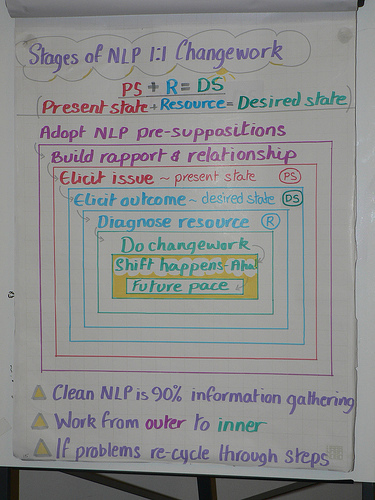 Stages of NLP 1:1 Changework
PS + R = DS
(Present state + Resource = Desired state)
Adopt NLP pre-suppositions
Build rapport & relationship
Elicit issue ~ present state PS
Elicit outcome ~ desired state DS
Diagnose resource R
Do changework
Shift happens - Aha!
Future pace
Clean NLP is 90% information gathering
Work from outer to inner
If problems re-cycle through steps